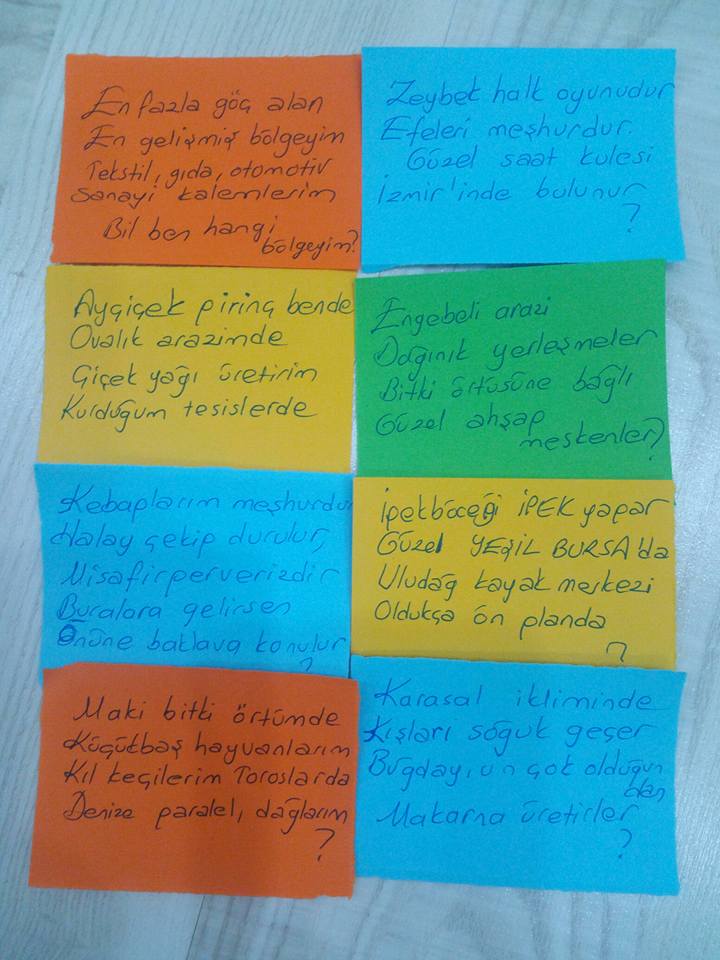 En fazla göç alan
En gelişmiş bölgeyim
Tekstil, gıda, otomotiv
Sanayi kalemlerim
Bil ben hangi
bölgeyim?
Zeybek halk oyunudur
Efeleri meşhurdur.
Güzel saat kulesi
İzmir'inde bulunur
?
Ayçiçek pirinç bende
Ovalık arazimde
Çiçek yağı üretirim
Kurduğum tesislerde
Engebeli arazi
Dağınık yerleşmeler
Bitki örtüsüne bağlı
Güzel ahşap
meskenler?
Kebaplarım meşhurdur
Halay çekip durulur,
Misafirperverizdir
Buralara gelirsen
Önüne baklava konulur
?
İpekböceği İPEK yapar
Güzel YEŞİL BURSA'da
Uludağ kayak merkezi
Oldukça ön planda
?
Maki bitki örtümde
Küçükbaş hayvanlarım
Kıl keçilerim Toroslarda
Denize paralel, dağlarım
?
Karasal ikliminde
Kışları soğuk geçer
Buğday, un çok olduğun
dan
Makarna üretirler
?